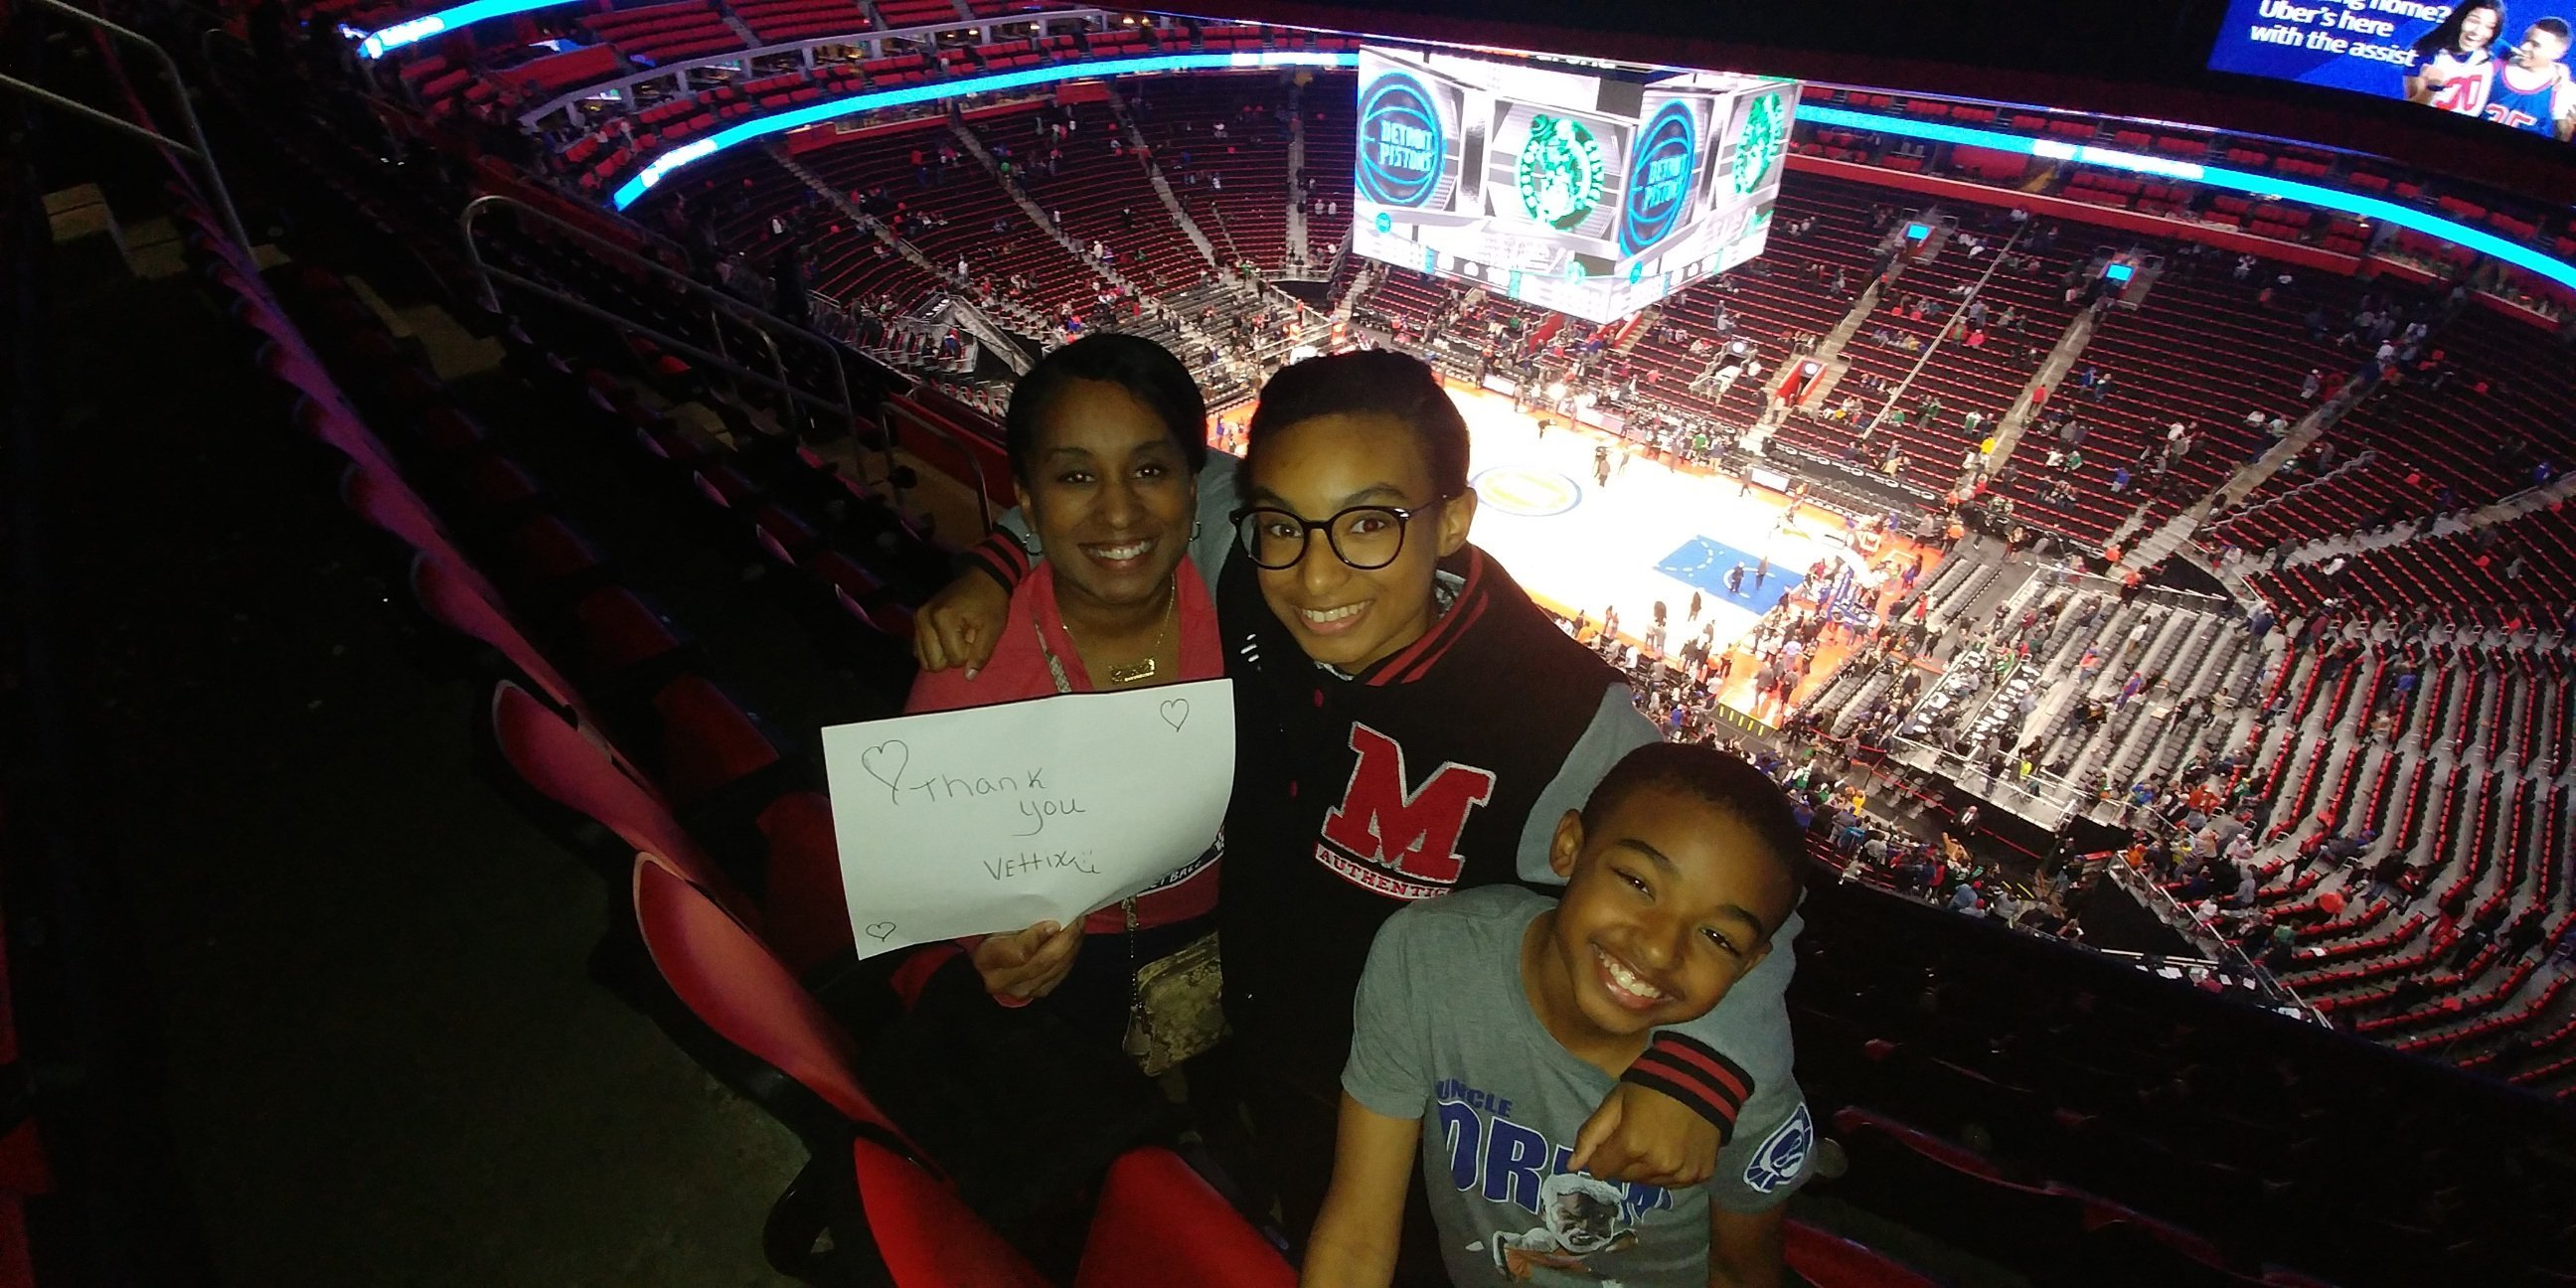 Uber's here
with the assist
DETROIT
PISTONS
DETROIT
PISTONS
Thank
you
Vettix
M
AUTHENTIC
UNCLE
DREW